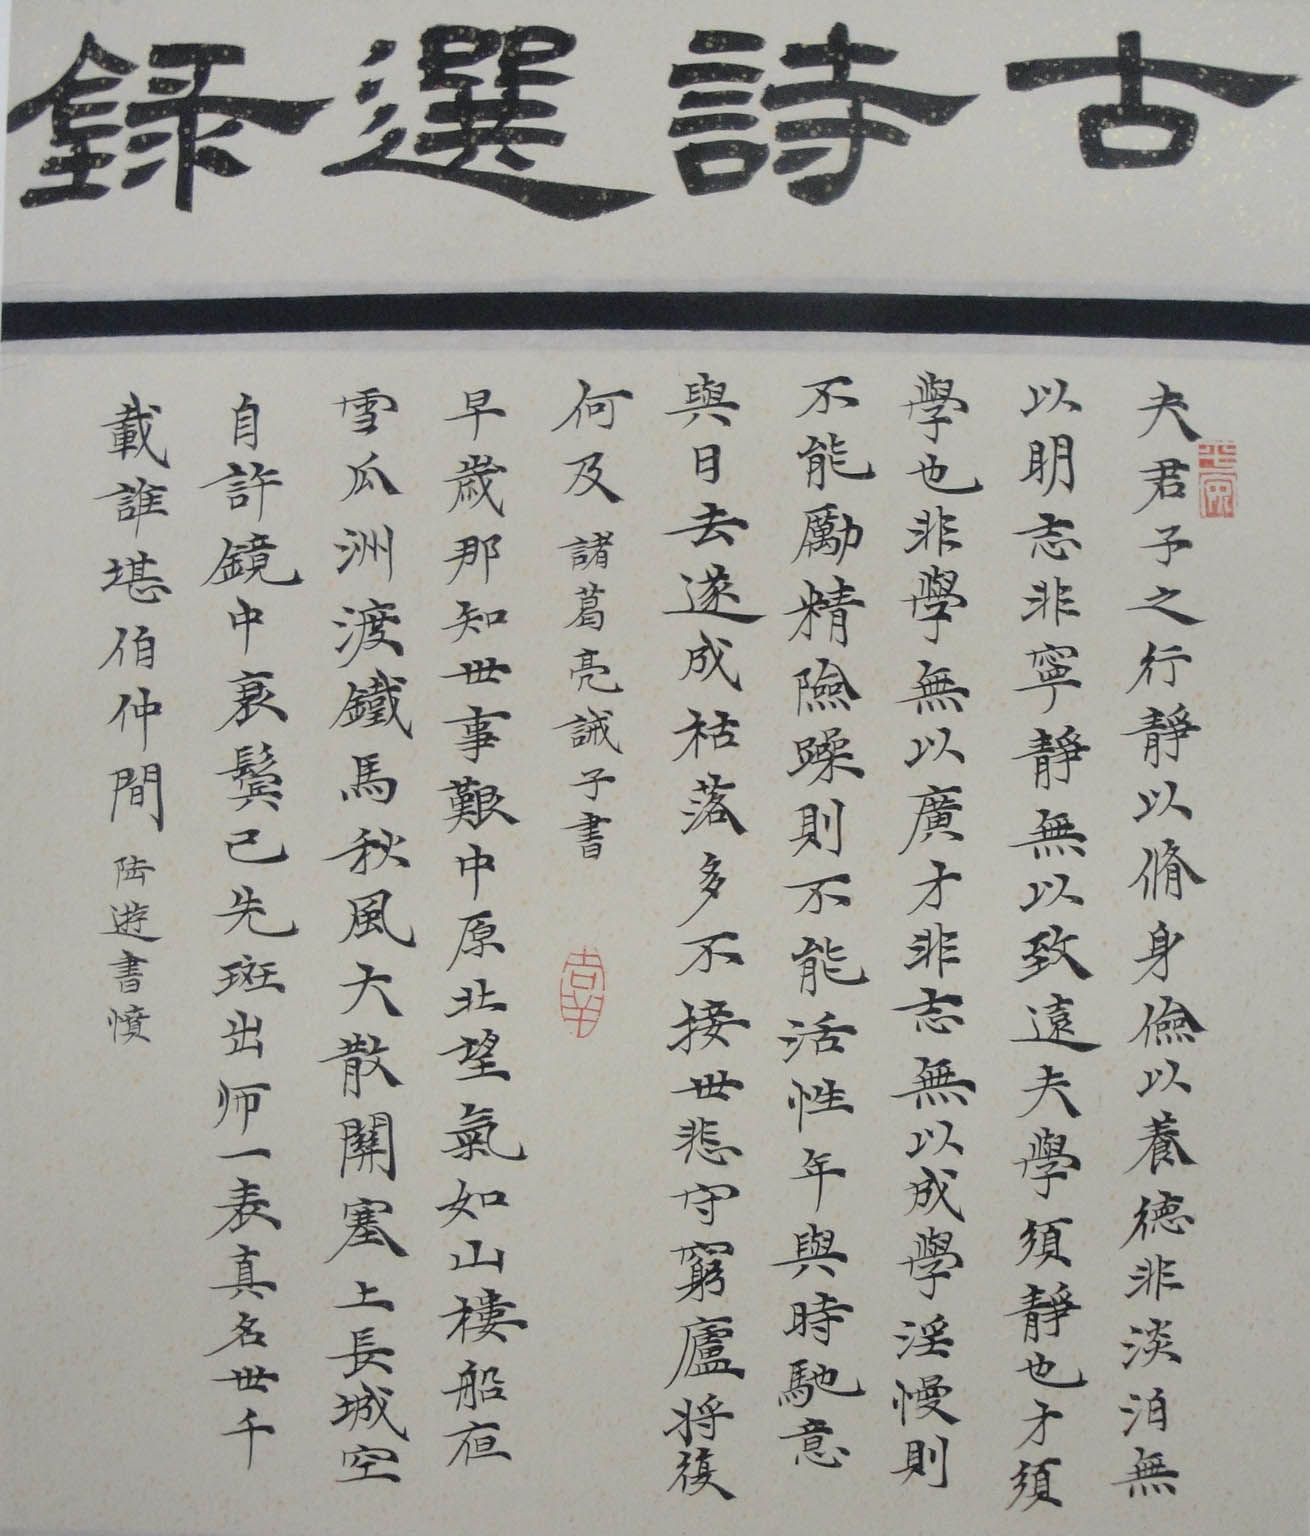 古詩選録
夫君子之行靜以脩身儉以養德非淡泊無
以明志非寧靜無以致遠夫學須靜也才須
學也非學無以廣才非志無以成學淫慢則
不能勵精險躁則不能活性年與時馳意
與日去遂成枯落多不接世悲守窮廬將復
何及 諸葛亮誡子書
早歲那知世事艱中原北望氣如山樓船夜
雪瓜洲渡鐵馬秋風大散關塞上長城空
自許鏡中衰鬢已先斑出师一表真名世千
載誰堪伯仲間 陸遊書憤